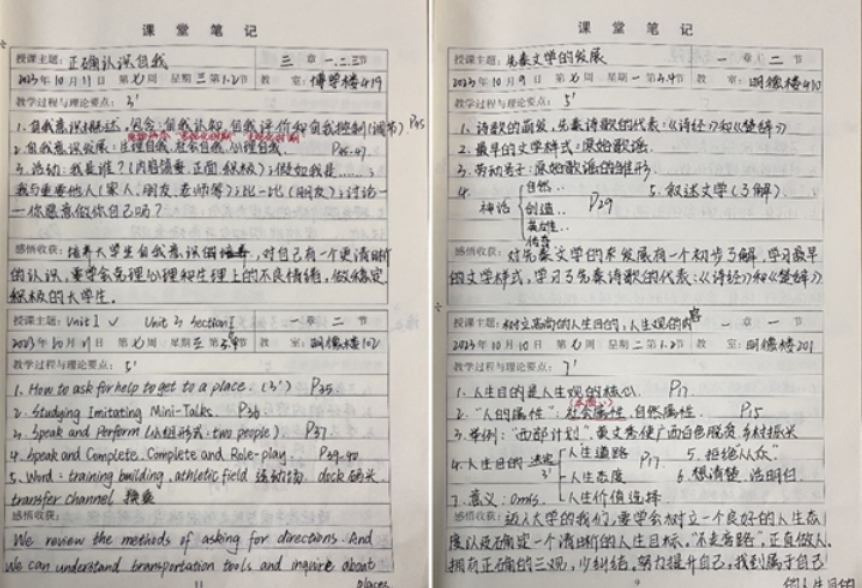 课堂笔记
授课主题: 正确认识自我 三章一.二.三节
2023年10月11日 第七周 星期三第1.2节 教室: 博学楼419
教学过程与理论要点: 3'
1. 自我意识概述, 包含: 自我认知 自我评价和自我控制(调节). P45
2. 自我意识发展: 生理自我, 社会自我, 心理自我. P45-47
3. 活动: 我是谁?(内容慎重、正面、积极); 假如我是……;
我与重要他人(家人、朋友、老师等); 比一比(朋友); 讨论—
—你愿意做你自己吗?
感悟收获: 培养大学生自我意识, 对自己有一个更清晰
的认识, 要学会处理心理和生理上的不良情绪, 做稳定
积极的大学生.
授课主题: Unit 1 ✓ Unit 3 Section I 一章二节
2023年10月11日 第七周 星期三第3.4节 教室: 明德楼102
教学过程与理论要点: 5'
1. How to ask for help to get to a place. (3') P35
2. Studying Imitating Mini-Talks. P36
3. Speak and Perform (小组形式: two people) P37
4. Speak and Complete. Complete and Role-play. P39-40
5. Word: training building. athletic field 运动场 dock 码头
transfer channel 换乘
感悟收获:
We review the methods of asking for directions. And
we can understand transportation tools and inquire about
places.
11
课堂笔记
授课主题: 先秦文学的发展 一章二节
2023年10月9日 第七周 星期一第3.4节 教室: 明德楼410
教学过程与理论要点: 5'
1. 诗歌的萌发, 先秦诗歌的代表:《诗经》和《楚辞》
2. 最早的文学样式: 原始歌谣.
3. 劳动号子: 原始歌谣的雏形.
4. 神话 自然.. 创造.. P29 英雄.. 传奇 5. 叙述文学(了解).
感悟收获: 对先秦文学的发展有一个初步了解, 学习最早
的文学样式, 学习了先秦诗歌的代表:《诗经》和《楚辞》
授课主题: 树立崇高的人生目的, 人生观的内容 一章一节
2023年10月10日 第七周 星期二第1.2节 教室: 明德楼201
教学过程与理论要点: 7'
1. 人生目的是人生观的核心. P17
2. "人的属性": 社会属性, 自然属性. P15
3. 举例: "西部计划" 黄文秀使广西百色脱贫 乡村振兴
4. 人生目的 决定 3' 人生道路 P17 5. 拒绝"从众".
人生态度 6. 想清楚 活明白.
7. 意义: 人生价值选择.
感悟收获: 迈入大学的我们, 要学会树立一个良好的人生态
度以及确定一个清晰的人生目标, "不走弯路", 正直做人,
拥有正确的三观, 少纠结, 努力提升自己, 找到属于自己
的人生目的
9